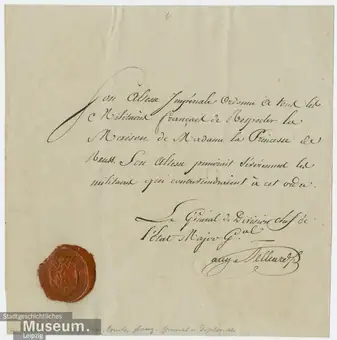 Son Altesse Impériale Ordonne a tous les
Militaires français de Respecter la
Maison de Madame la Princesse de
Reuss. Son Altesse puniroit sévèrement les
militaires qui contreviendraient à cet ordre
Le Général de Division chef de
l'état Major Gral
Stadtgeschichtliches
Museum.
Leipzig